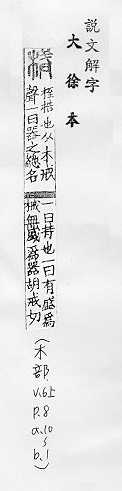 說文解字
大徐本
械
桎梏也从木戒
聲一曰器之總名
一曰持也一曰有盛爲
械無盛爲器胡戒切
(木部
V.6上
P.8
a.10
b.1)